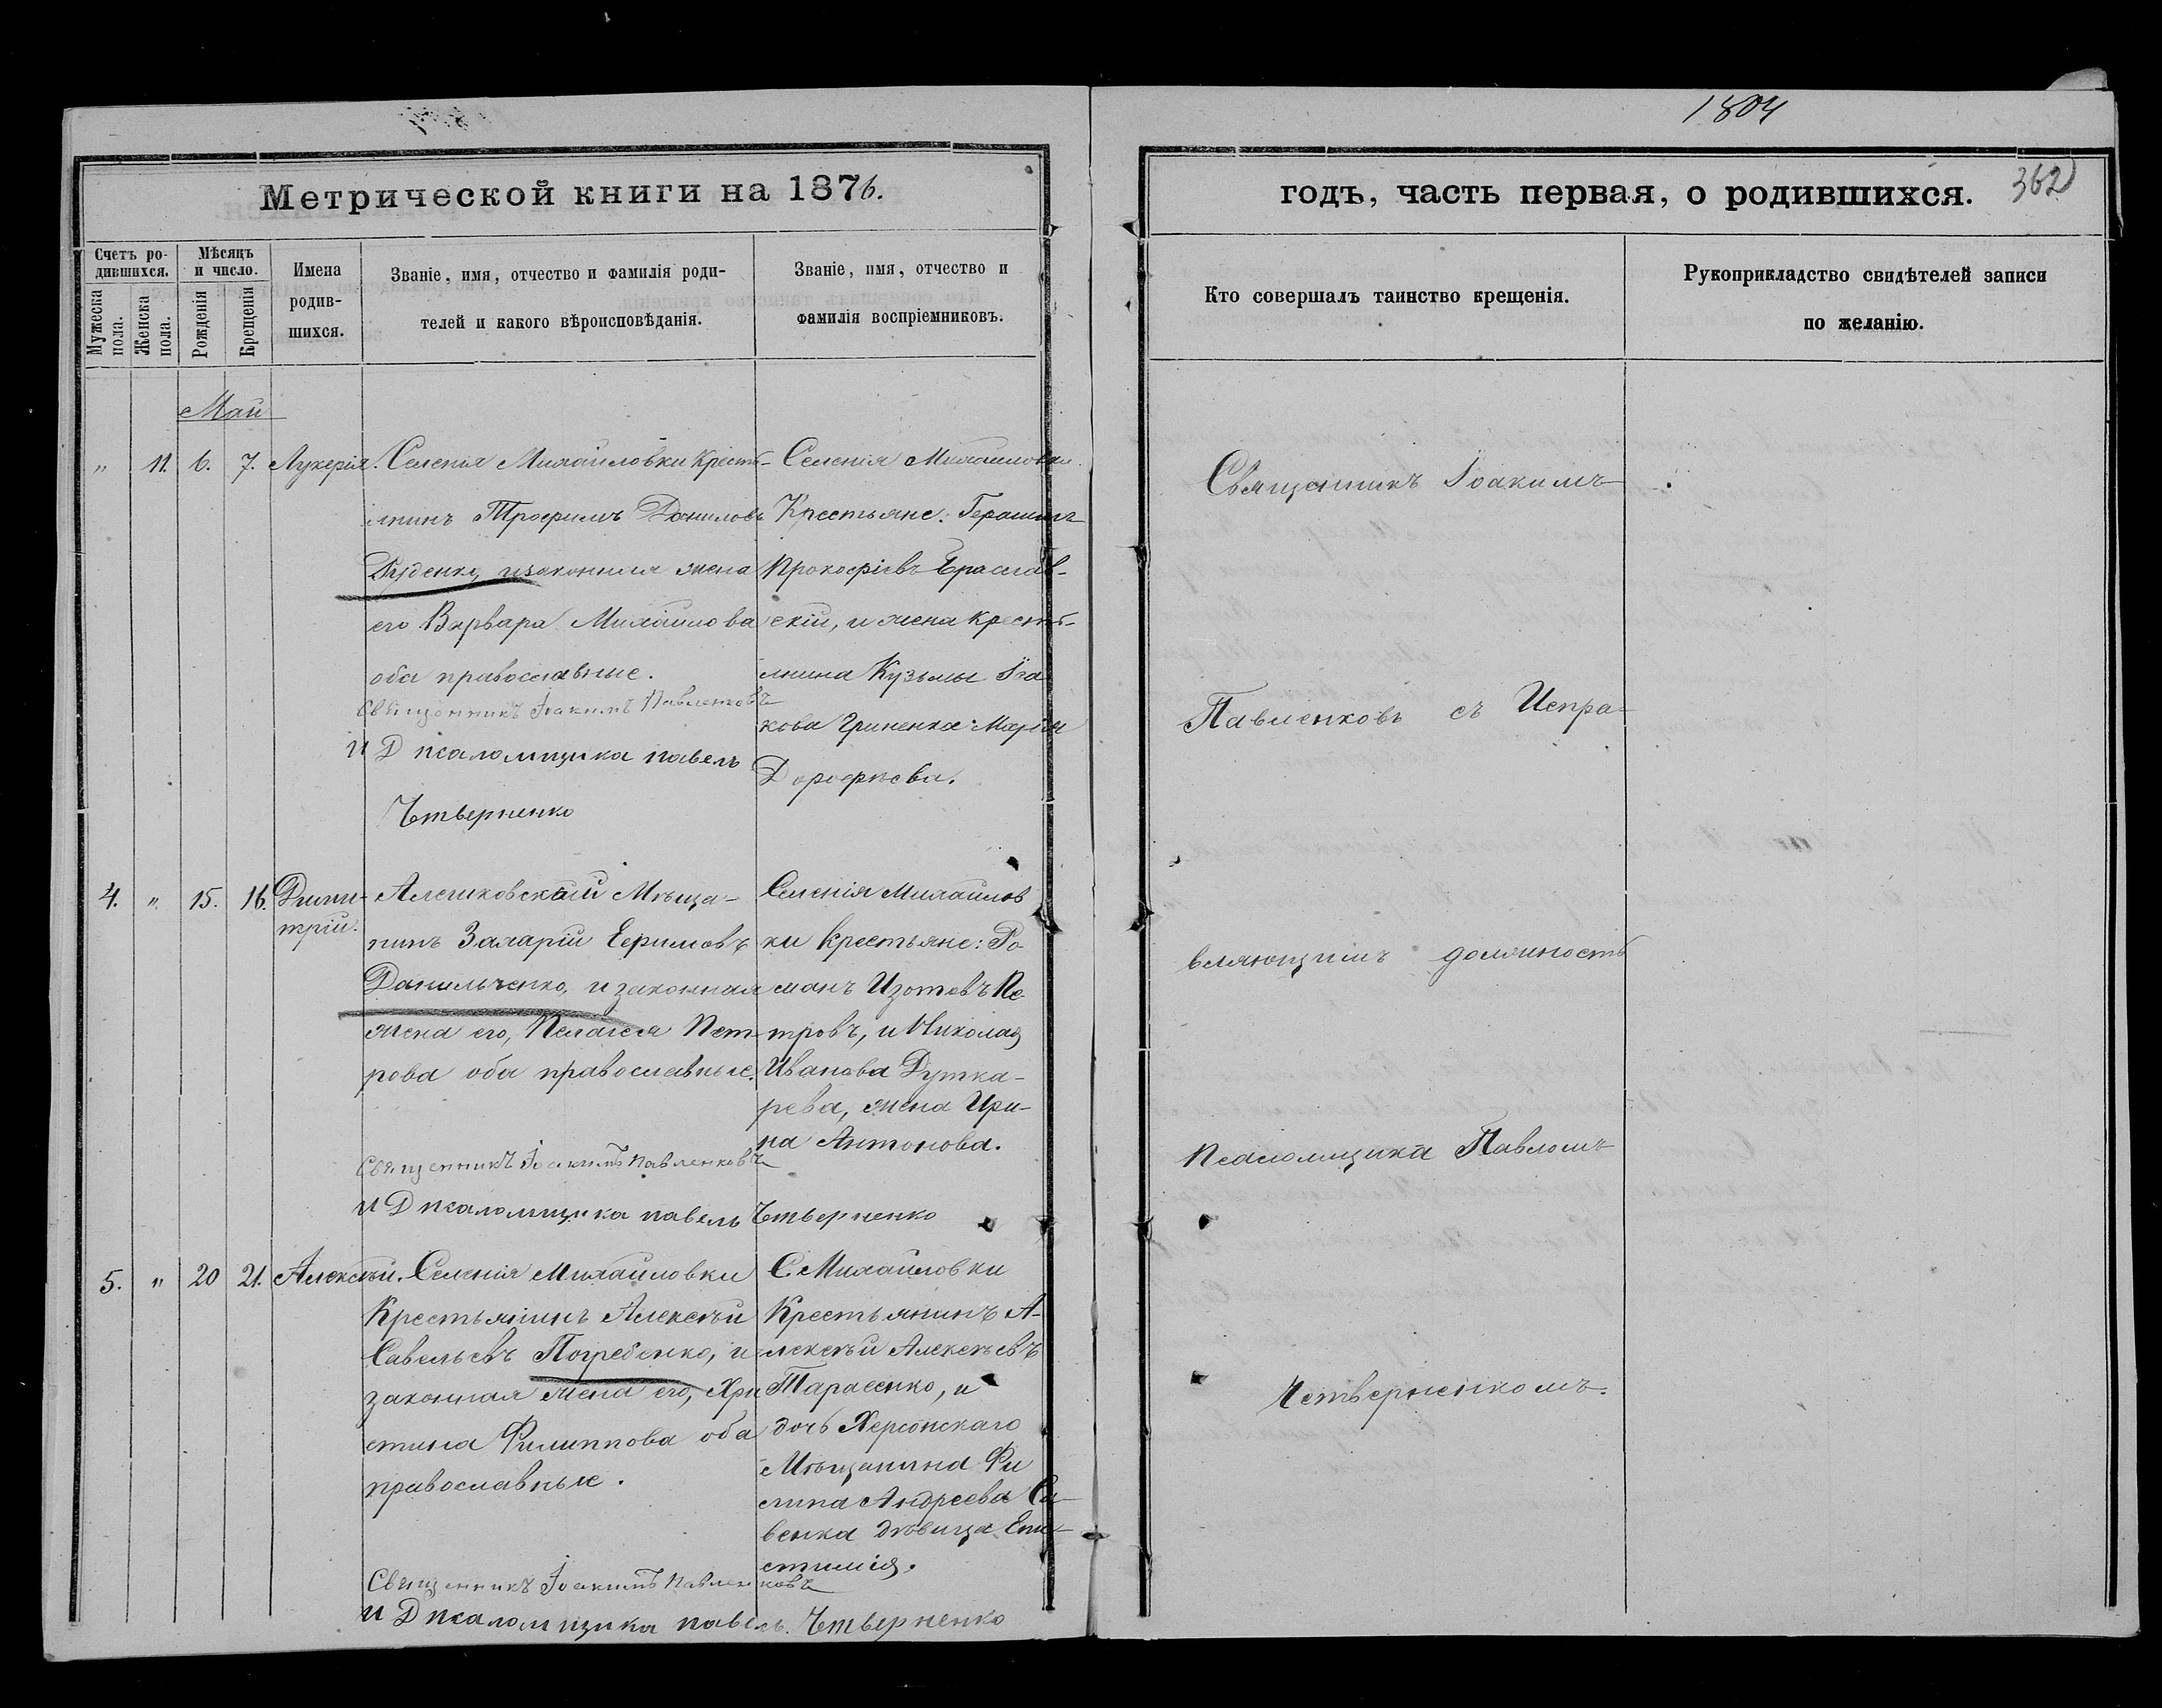 1804
Метрической книги на 1876.
годъ, часть первая, о родившихся.
362
Счетъ ро-
дившихся.
Мужеска
пола.
Женска
пола.
Мѣсяцъ
и число.
Рожденія
Крещенія
Имена
родив-
шихся.
Званіе, имя, отчество и фамилія роди-
телей и какого вѣроисповѣданія.
Званіе, имя, отчество и
фамилія воспріемниковъ.
Кто совершалъ таинство крещенія.
Рукоприкладство свидѣтелей записи
по желанію.
Май
" 11. 6. 7. Лукерія.
Селенія Михайловки Кресть-
янинъ Трофимъ Даниловъ
Руденко, и законная жена
его Варвара Михайлова
оба православные.
Священникъ Іоакимъ Павленковъ
и Д псаломщика павелъ
Четверненко
Селенія Михаиловки
Крестьяне: Герасимъ
Прокофіевъ Ераслав-
скій, и жена кресть-
янина Кузьмы Іа
кова Гриненка: Марія
Дорофѣева.
4. " 15. 16. Дими-
трій.
Алешковскій Мѣща-
нинъ Захарій Ефимовъ
Данильченко, и законная
жена его, Пелагея Пет-
рова оба православные.
Священникъ Іоакимъ Павленковъ
и Д псаломщика павелъ Четверненко
Селенія Михайлов
ки крестьяне: Ро
манъ Изотовъ Пе-
тровъ, и Николая
Иванова Дутка-
рева, жена Ири-
на Антонова.
5. " 20 21. Алексѣй.
Селенія Михайловки
Крестьянинъ Алексѣй
Савельевъ Погребенко, и
законная жена его, Хри
стина Филиппова оба
православные.
Священникъ Іоакимъ Павленковъ
и Д псаломщика павелъ. Четверненко
С. Михайловки
Крестьянинъ А-
лексѣй Алексѣевъ
Тарасенко, и
дочь Херсонскаго
Мѣщанина Фи
липа Андреева Са-
венка дѣвица Епи-
стимія.
Священникъ Іоакимъ
Павленковъ съ Испра-
вляющимъ должность
Псаломщика Павломъ
Четверненкомъ.